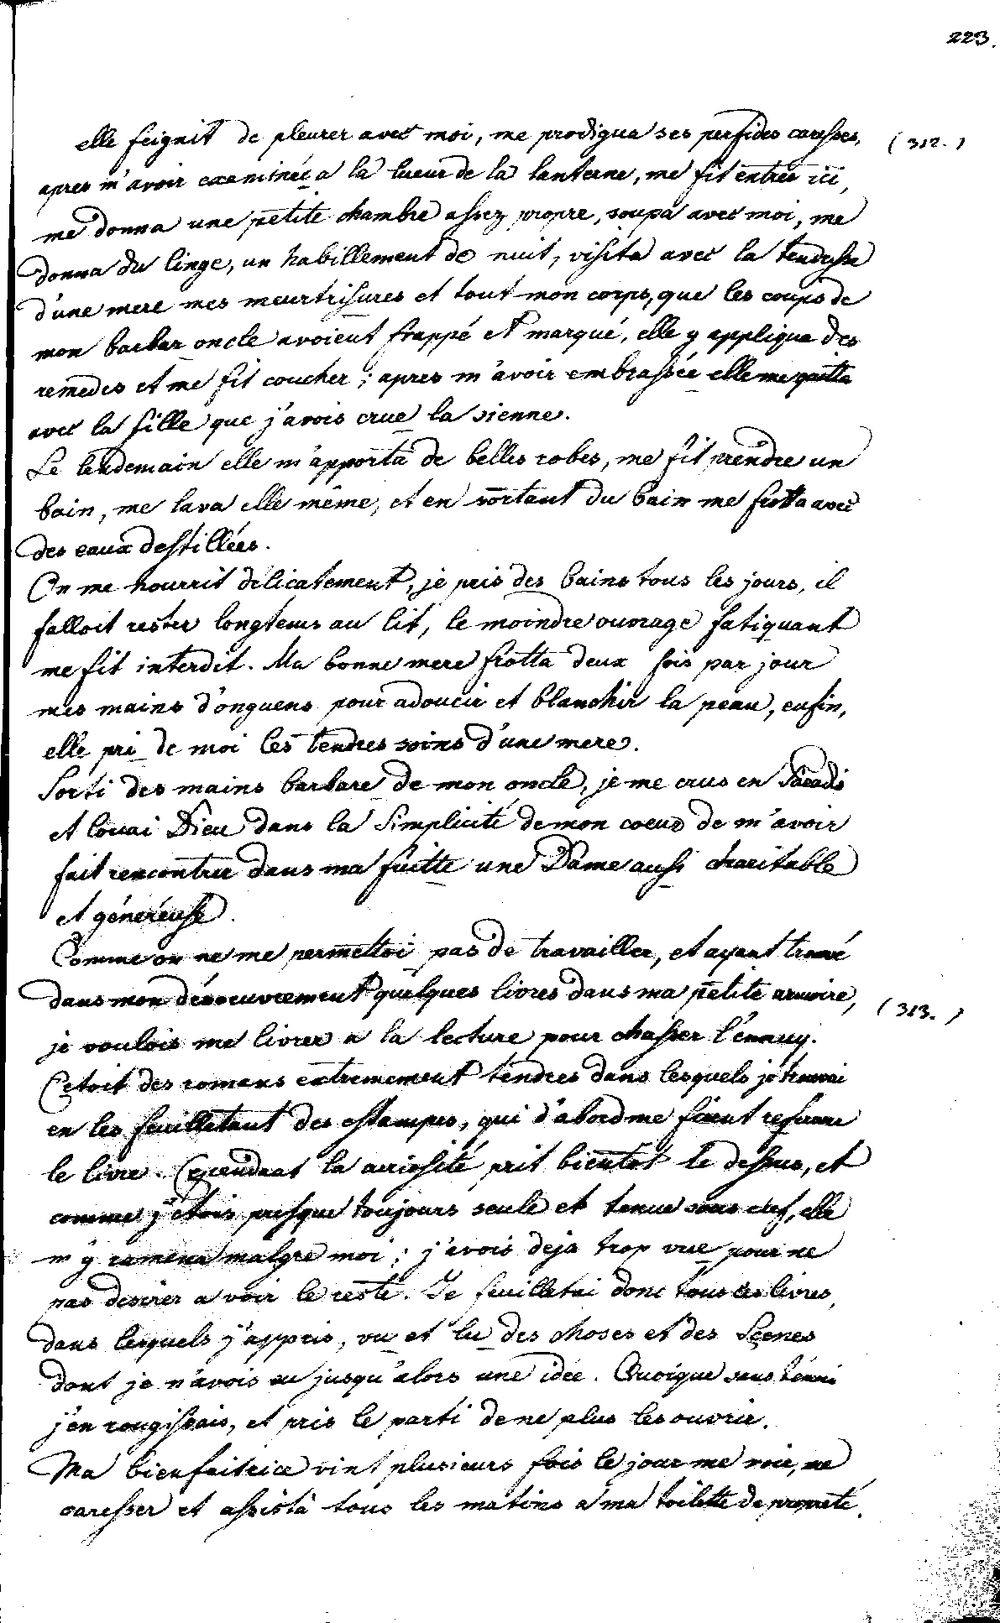 223.
elle feignit de pleurer avec moi, me prodigua ses perfides caresses,
(312.)
apres m'avoir examinée a la lueur de la lanterne, me fit entrer ici,
me donna une petite chambre assez propre, soupa avec moi, me
donna du linge, un habillement de nuit, visita avec la tendresse
d'une mere mes meurtrisures et tout mon corps, que les coups de
mon barbar oncle avoient frappé et marqué, elle y appliqua des
remedes et me fit coucher; apres m'avoir embrassée elle me quitta
avec la fille que j'avois crue la sienne.
Le lendemain elle m'apporta de belles robes, me fit prendre un
bain, me lava elle même, et en sortant du bain me frotta avec
des eaux destillées.
On me nourrit délicatement, je pris des bains tous les jours, il
falloit rester longtems au lit, le moindre ouvrage fatiquant
me fit interdit. Ma bonne mere frotta deux fois par jour
mes mains d'onguens pour adoucir et blanchir la peau, enfin,
elle pri de moi les tendres soins d'une mere.
Sorti des mains barbare de mon oncle, je me crus en
et louai Dieu dans la simplicité de mon coeur de m'avoir
fait rencontrer dans ma fuitte une Dame aussi charitable
et généreuse.
Comme on ne me permettoi pas de travailler, et ayant trouvé
dans mon désoeuvrement quelques livres dans ma petite armoire,
(313.)
je voulois me livrer a la lecture pour chasser l'ennuy.
C'etoit des romans extremement tendres dans lesquels je trouvai
en les feuilletant des estampes, qui d'abord me firent refermer
le livre. Cependant la curiosité prit bientot le dessus, et
comme j'etois presque toujours seule et tenue sous clef, elle
m'y ramena malgre moi; j'avois deja trop vue pour ne
pas desirer a voir le reste. Je feuilletai donc tous les livres,
dans lesquels j'appris, vu et lu des choses et des Scenes
dont je n'avois eu jusqu'alors une idée. Quoique sans témoi
j'en rougissais, et pris le parti de ne plus les ouvrir.
Ma bienfaitrice vint plusieurs fois le jour me voir, me
caresser et assista tous les matins a ma toilette de propreté.